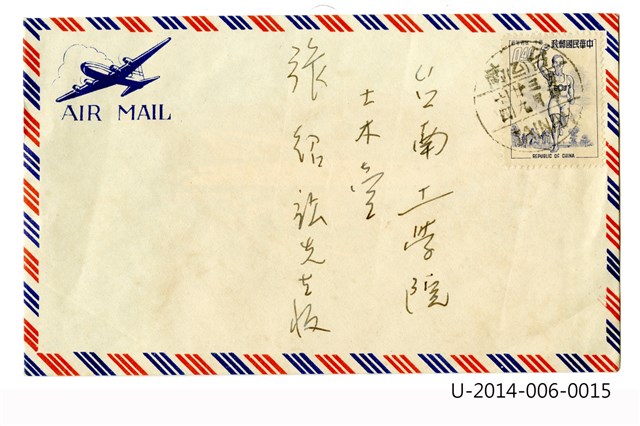 AIR MAIL
中華民國郵政
REPUBLIC OF CHINA
TAIWAN
台南工學院
土木堂
張紹
先生收
U-2014-006-0015